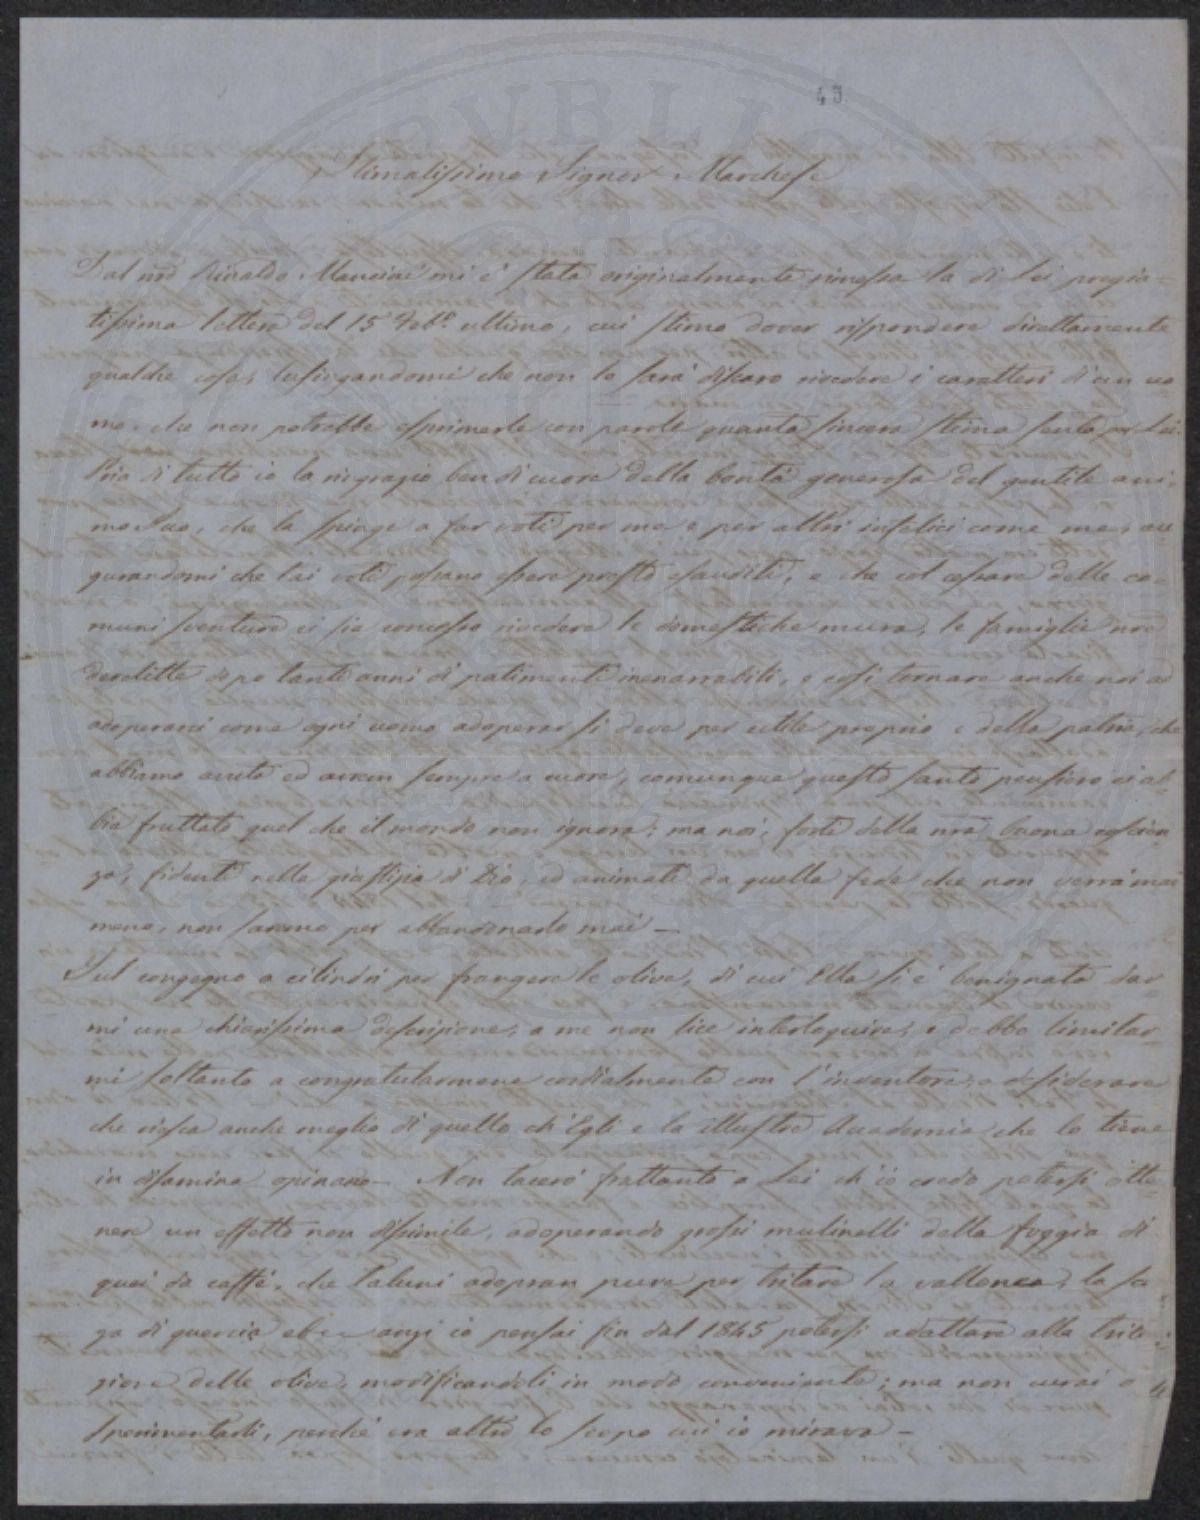 43.
Stimatissimo Signor Marchese
Dal nro Rinaldo Mancini mi è stata originalmente rimessa la di Lei pregia=
tissima lettera del 15 Feb.o ultimo, cui stimo dover rispondere direttamente
qualche cosa, lusingandomi che non le sarà discaro rivedere i caratteri di un uo
mo, che non potrebbe esprimerle con parole quanta sincera stima senta per Lei.
Pria di tutto io la ringrazio ben di cuore della bontà generosa del gentile ani-
mo Suo, che la spinge a far voti per me e per altri infelici come me, au
gurandomi che tai voti possano essere presto esauditi, e che col cessare delle co=
muni sventure ci sia concesso rivedere le domestiche mura, le famiglie nre
derelitte dopo tanti anni di patimenti inenarrabili, e così tornare anche noi ad
adoperarci come ogni uomo adoperar si deve per utile proprio e della patria, che
abbiamo avuta ed avrem sempre a cuore, comunque questo santo pensiero ci ab=
bia fruttato quel che il mondo non ignora; ma noi, forti della nra buona coscien
za, fidenti nella giustizia di Dio, ed animati da quella fede che non verrà mai
meno, non saremo per abbandonarlo mai —
Sul congegno a cilindri per frangere le olive, di cui Ella si è benignata dar=
mi una chiarissima descrizione, a me non lice interloquire, e debbo limitar=
mi soltanto a congratularmene cordialmente con l'inventore, e desiderare
che riesca anche meglio di quello ch'Egli e la illustre Accademia che lo tiene
in disamina opinano — Non tacerò frattanto a Lei ch'io credo potersi otte=
nere un effetto non dissimile, adoperando grossi mulinelli della foggia di
quei da caffè, che taluni adopran pure per tritare la vallonea, la sca
za di quercia anzi io pensai fin dal 1845 potersi adattare alla trita
zione delle olive, modificandoli in modo conveniente; ma non curai
sperimentarli, perchè era altro lo scopo cui io mirava —